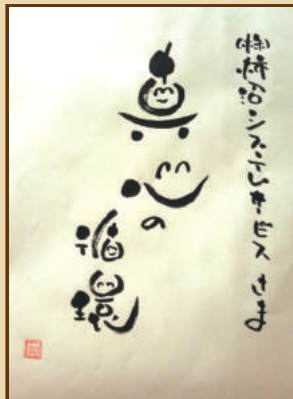 (株)柿沼システムサービス さま
真心の
循環